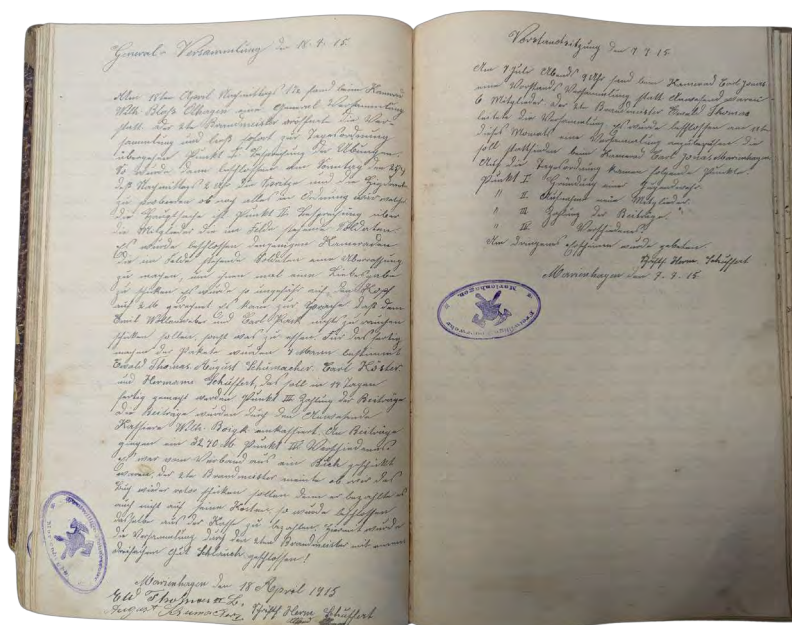 General-Versammlung den 18.4.15.
Am 18ten April Nachmittags fand beim Kamerad
Wilh. Bloß eine General Versammlung
statt. Der 2te Brandmeister eröffnete die Ver-
sammlung und sofort zur Tagesordnung
übergehen Punkt I. Besprechung der Übungen.
Es wurde dann beschlossen am Sonntag den
Nachmittags 2 Uhr die Spritze und die
zu proben ob noch alles in Ordnung wär welches
die Hauptsache ist Punkt II. Besprechung über
die Mitglieder die im Felde stehende Soldaten.
Es wurde beschlossen denjenigen Kameraden
die im Felde stehende Soldaten eine
zu machen, um ihnen mal eine Liebesgabe
zu schicken es wurde so ungefähr auf den Kopf
auf 2 M gerechnet es kam zur Sprache daß dem
Emil und Carl nichts zu rauchen
schicken sollen, sonst was zu essen. Für das fertig
machen der Pakete wurden 4 Mann bestimmt
Ewald Thomas August Schumacher, Carl Köster
und Hermann Schüssert, das soll in 14 Tagen
fertig gemacht werden Punkt III Zahlung der Beiträge
Die Beiträge wurden durch den Anwesenden
Kassierer Wilh. einkassiert. An Beiträge
gingen ein 32,70 M. Punkt IV. Verschiedenes
Es war vom Verband aus ein Buch geschickt
worden, der 2te Brandmeister meinte ob wir das
Buch wieder retour schicken sollen denn er bezahlte es
auch nicht auf seine Kosten, so wurde beschlossen
dasselbe aus der Kasse zu bezahlen. Hiermit wurde
die Versammlung durch den 2ten Brandmeister mit einem
dreifachen Gut Schlauch geschlossen!
Marienhagen den 18 April 1915
Ew Thomas II B.
August Schumacher, Schriftf. Herm Schüssert
Freiwillige Feuerwehr
Marienhagen
Vorstandsitzung den 7.7.15.
Am 7 Juli Abends 9 Uhr fand beim Kamerad Carl Jonas
eine Vorstands Versammlung statt Anwesend waren
6 Mitglieder. Der 2te Brandmeister Ewald Thomas
leitete die Versammlung es wurde beschlossen am
dieses Monats eine Versammlung anzuberufen die
soll stattfinden beim Kamerad Carl Jonas Marienhagen
Auf die Tagesordnung kamen folgende Punkte
Punkt I. Gründung eine Jugendwehr.
" II Aufnahme neue Mitglieder.
" III Zahlung der Beiträge.
" IV. Verschiedenes.
Um dringenes erscheinen wurde gebeten.
Schriftf. Herm Schüssert
Marienhagen den 7.7.15
Freiwillige Feuerwehr
Marienhagen